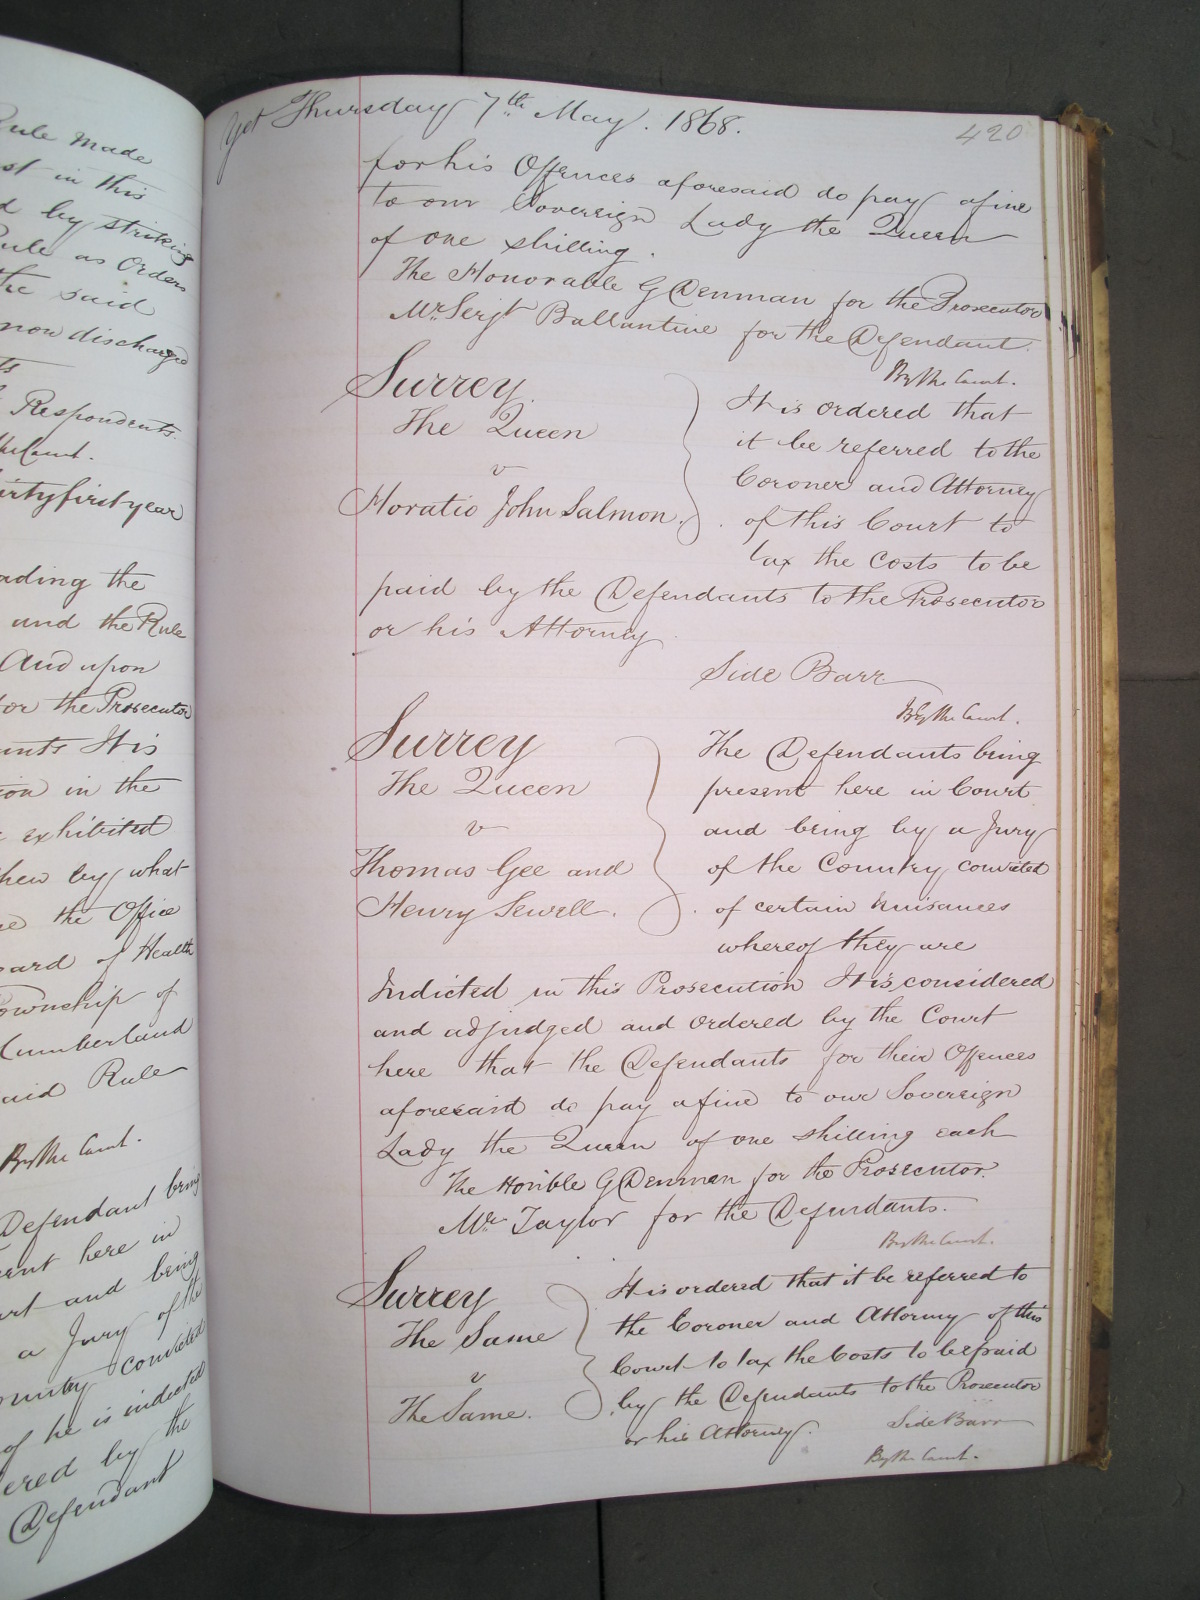 Rule made
st in this
d by striking
Rule as Orders
the said
now discharged
ts
Respondents.
the Court.
irtyfirst year
ading the
und the Rule
And upon
for the Prosecutor
unts It is
ion in the
exhibited
hew by what
the Office
oard of Health
Township of
Cumberland
said Rule
By the Court.
Defendant being
sent here in
urt and being
a Jury of the
ountry convicted
of he is indicted
ered by the
Defendant
Yet Thursday 7th May. 1868.
420
for his Offences aforesaid do pay a fine
to our Sovereign Lady the Queen
of one shilling.
The Honorable G Denman for the Prosecutor
Mr. Serjt Ballantine for the Defendant.
By the Court.
Surrey.
The Queen
v
Horatio John Salmon.
It is ordered that
it be referred to the
Coroner and Attorney
of this Court to
tax the Costs to be
paid by the Defendants to the Prosecutor
or his Attorney
Side Barr
By the Court.
Surrey
The Queen
v
Thomas Gee and
Henry Sewell.
The Defendants being
present here in Court
and being by a Jury
of the Country convicted
of certain Nuisances
whereof they are
Indicted in this Prosecution It is considered
and adjudged and ordered by the Court
here that the Defendants for their Offences
aforesaid do pay a fine to our Sovereign
Lady the Queen of one shilling each
The Honible G Denman for the Prosecutor.
Mr Taylor for the Defendants.
By the Court.
Surrey
The Same
v
The Same.
It is ordered that it be referred to
the Coroner and Attorney of this
Court to tax the Costs to be paid
by the Defendants to the Prosecutor
or his Attorney.
Side Barr
By the Court.